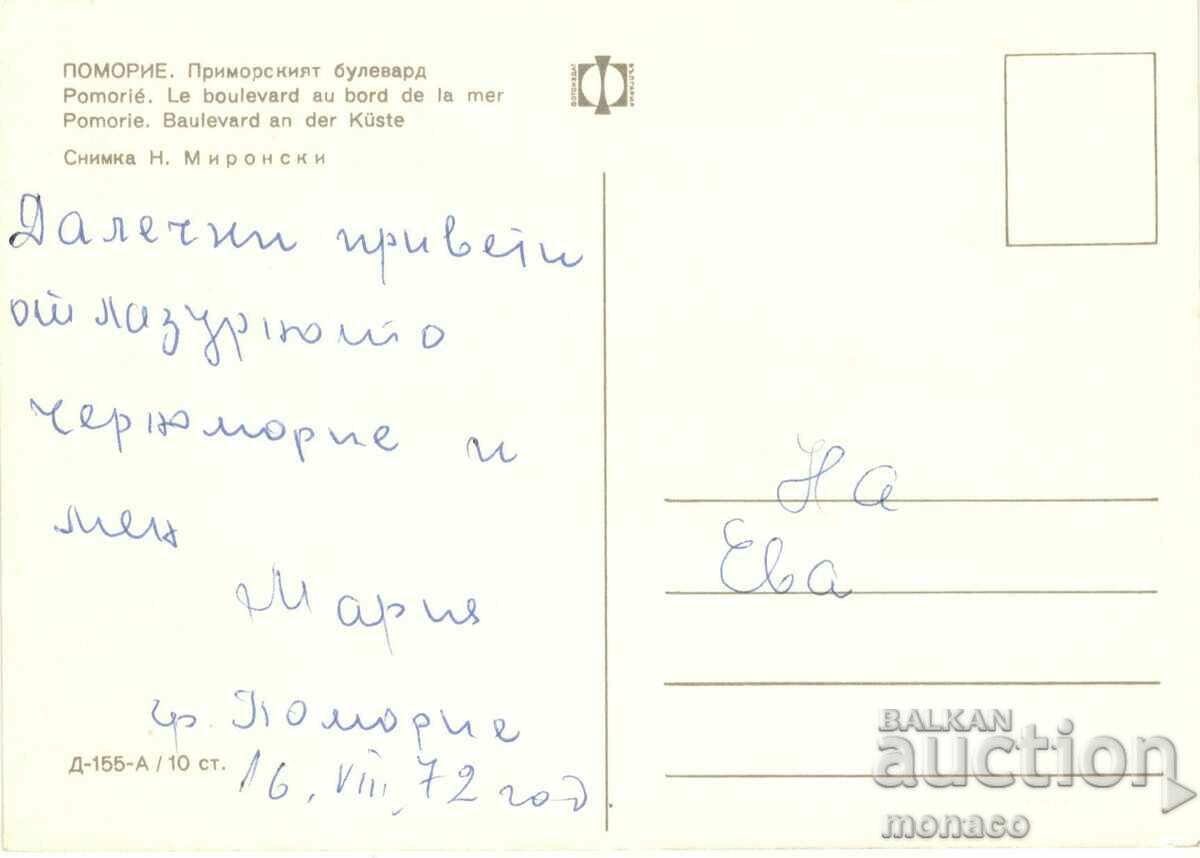 ПОМОРИЕ. Приморският булевард
Pomorié. Le boulevard au bord de la mer
Pomorie. Baulevard an der Küste
Снимка Н. Миронски
ФОТОИЗДАТ
БЪЛГАРИЯ
Далечни привети
от лазурното
черноморие и
мен
Мария
гр. Поморие
16. VIII. 72 год
Д-155-А / 10 ст.
На
Ева
BALKAN
auction
monaco